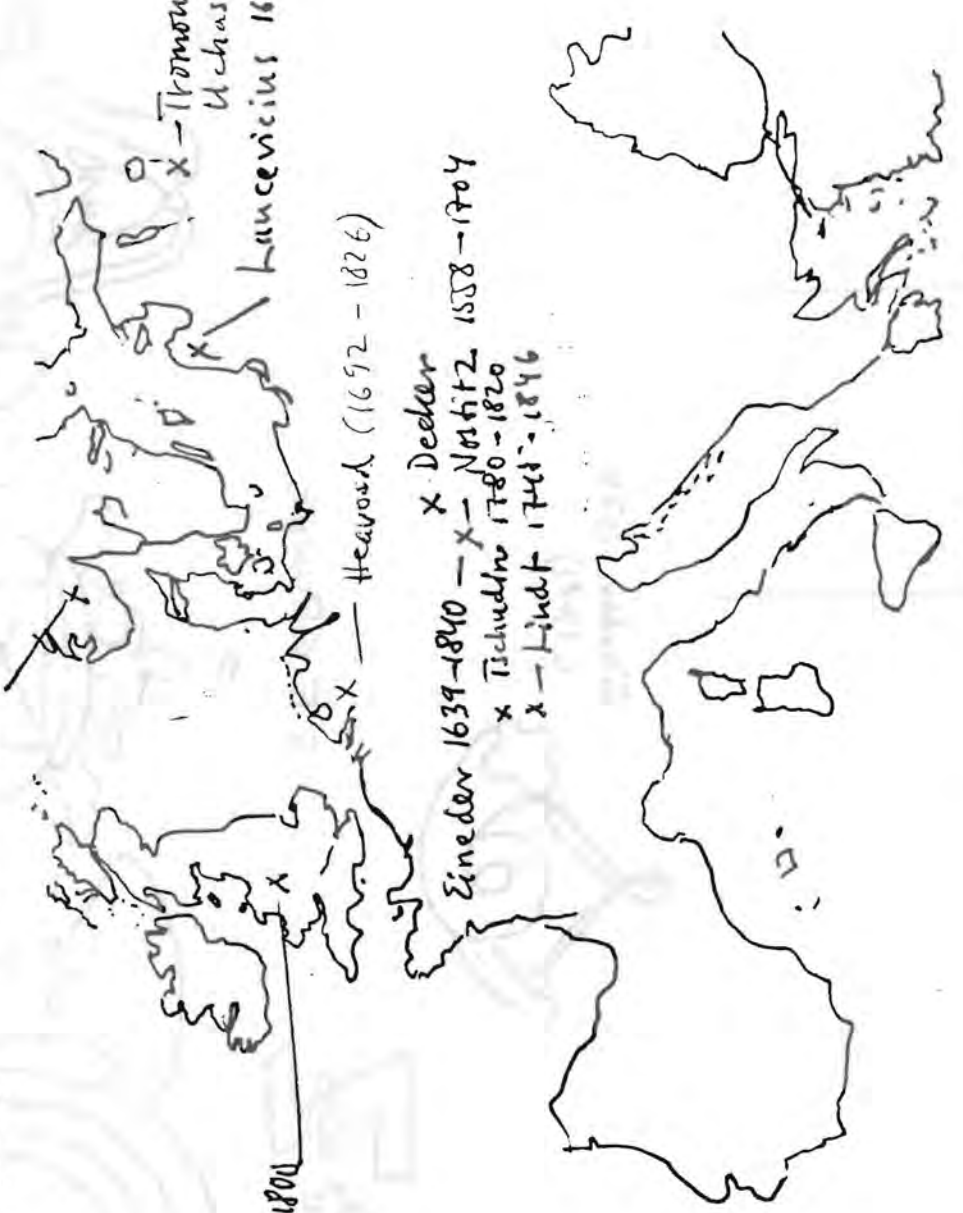 x – Tromon
Uchas
Laucevicius 16
x — Heawood (1692 – 1826)
x Decker
Eineder 1639–1840 — x — Nostitz 1558–1704
x Tschudin 1780–1820
x – Lindt 1745–1846
1800